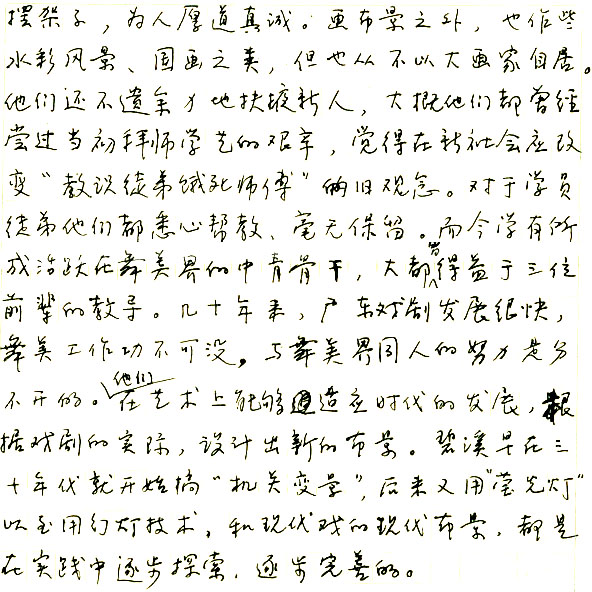 摆架子，为人厚道真诚。画布景之外，也作些
水彩风景、国画之类，但也从不以大画家自居。
他们还不遗余力地扶掖新人，大概他们都曾经
尝过当初拜师学艺的艰辛，觉得在新社会应改
变“教识徒弟饿死师傅”的旧观念。对于学员
徒弟他们都悉心帮教、毫无保留。而今学有所
成活跃在舞美界的中青骨干，大都曾得益于三位
前辈的教导。几十年来，广东戏剧发展很快，
舞美工作功不可没，与舞美界同人的努力是分
不开的。他们在艺术上能够适应时代的发展，根
据戏剧的实际，设计出新的布景。碧溪早在三
十年代就开始搞“机关变景”，后来又用“萤光灯”
以至用幻灯技术，和现代戏的现代布景，都是
在实践中逐步探索，逐步完善的。